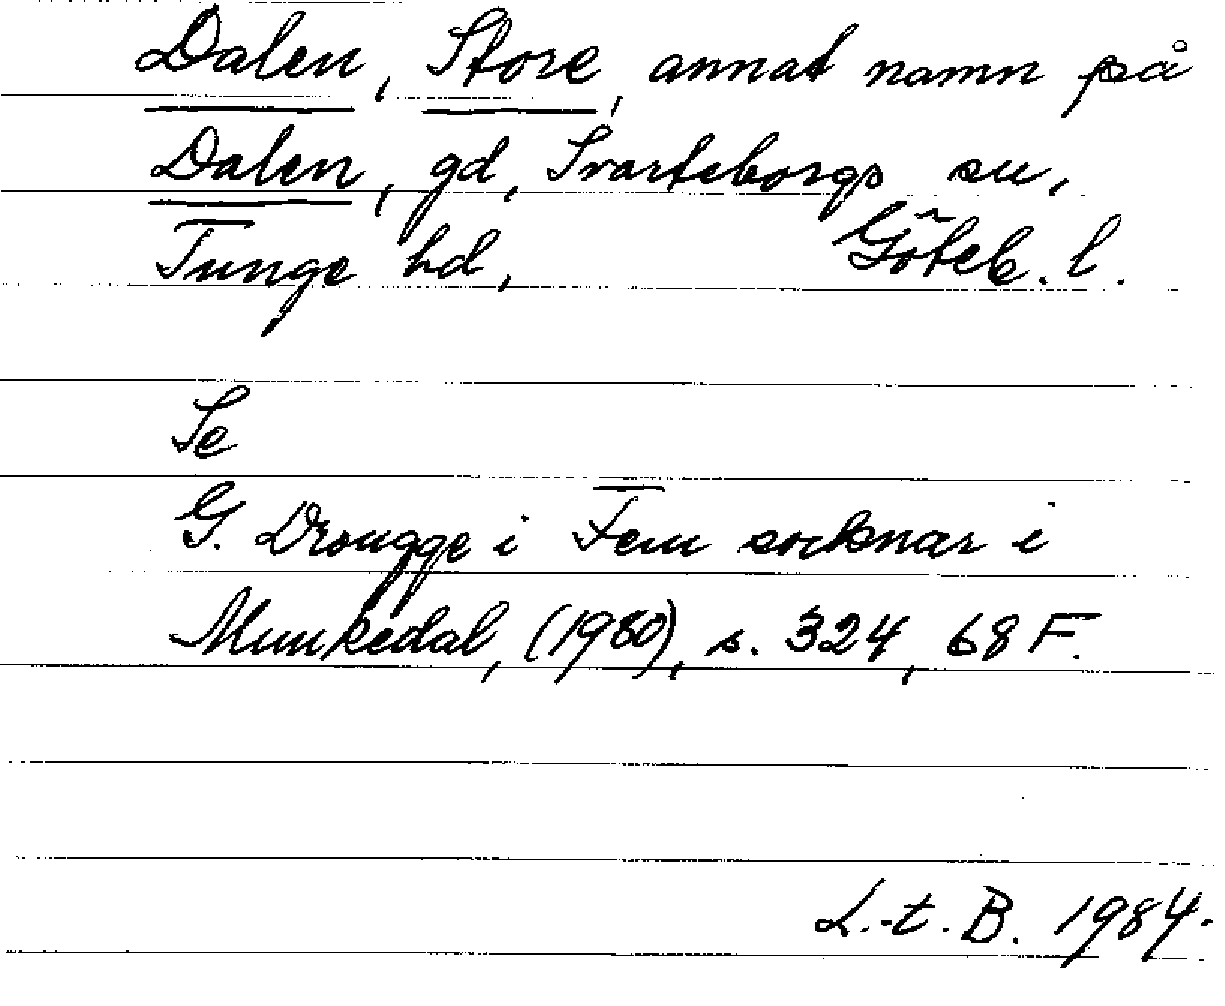 Dalen, Store, annat namn på
Dalen, gd, Svarteborgs sn,
Tunge hd, Göteb. l.
Se
G. Drougge i Fem socknar i
Munkedal, (1980), s. 324, 68 F.
L.-t. B. 1984.